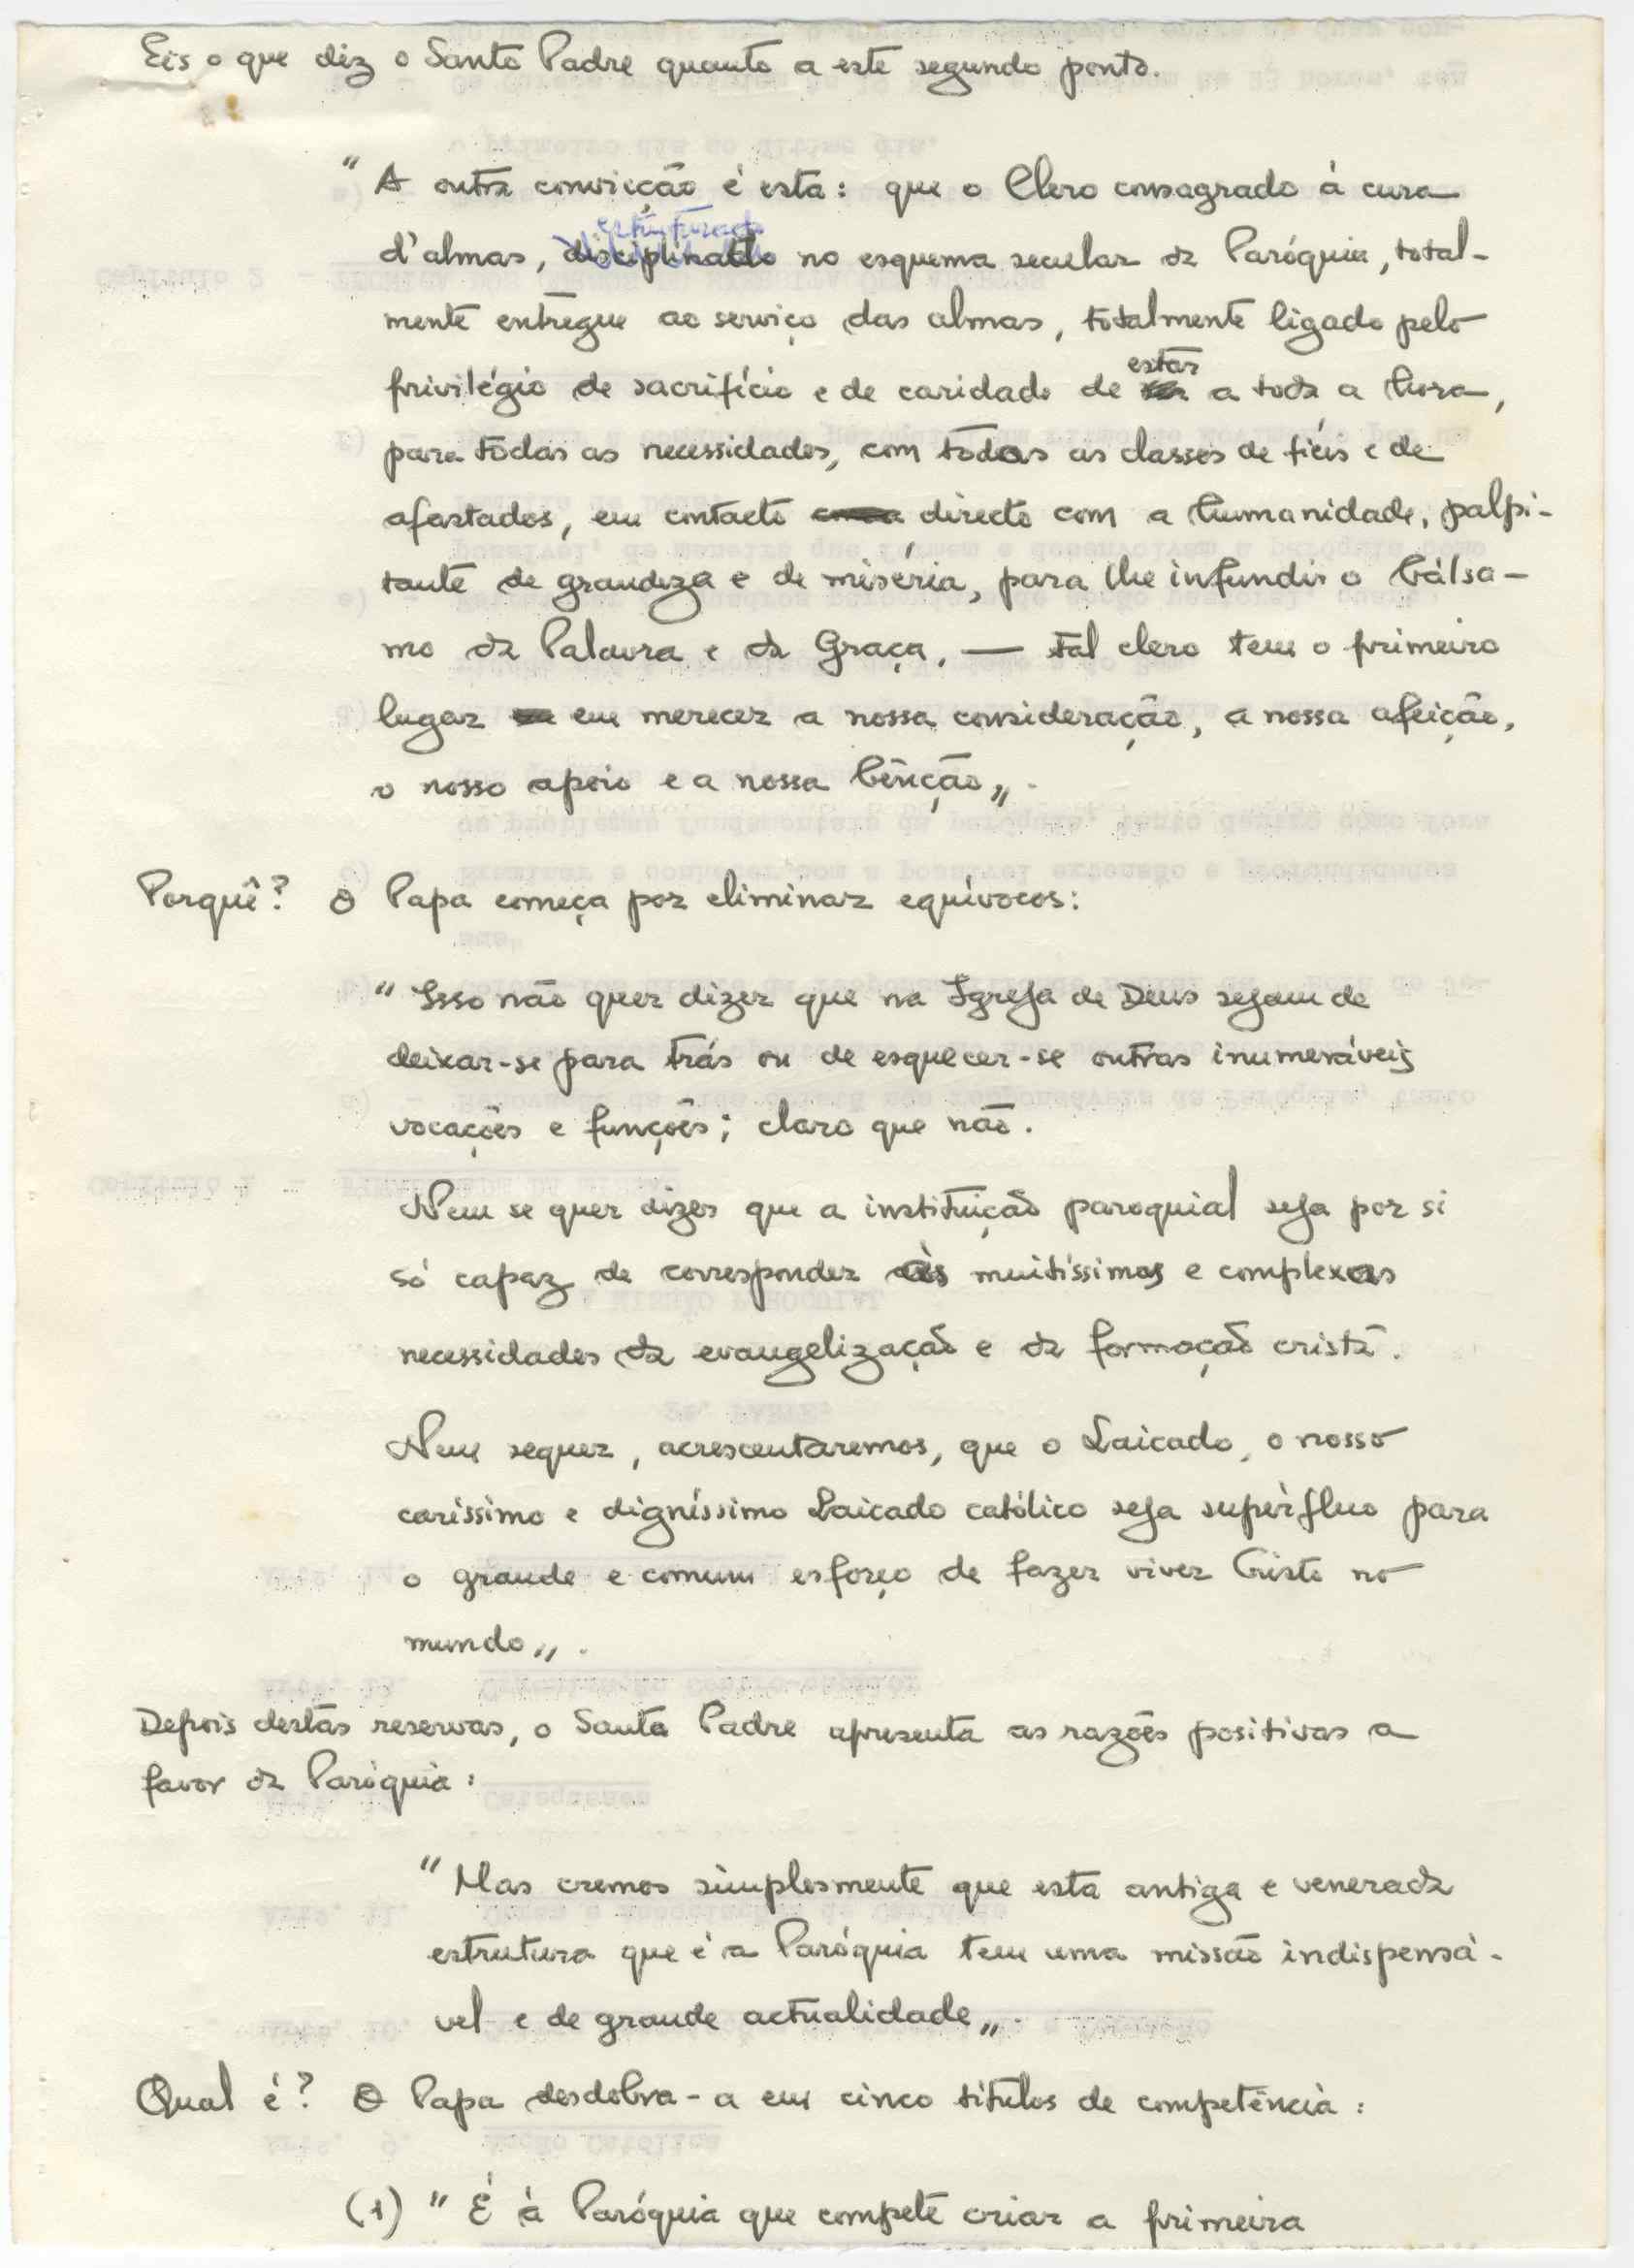 Eis o que diz o Santo Padre quanto a este segundo ponto.
"A outra convicção é esta: que o Clero consagrado á cura
estruturado
d'almas, disciplinado no esquema secular da Paróquia, total-
mente entregue ao serviço das almas, totalmente ligado pelo
estar
privilégio de sacrifício e de caridade de a toda a hora,
para todas as necessidades, com todas as classes de fiéis e de
afastados, em contacto directo com a humanidade, palpi-
tante de grandeza e de miséria, para lhe infundir o bálsa-
mo da Palavra e da Graça, — tal clero tem o primeiro
lugar em merecer a nossa consideração, a nossa afeição,
o nosso apoio e a nossa bênção„.
Porquê? O Papa começa por eliminar equívocos:
"Isso não quer dizer que na Igreja de Deus sejam de
deixar-se para trás ou de esquecer-se outras inumeráveis
vocações e funções; claro que não.
Nem se quer dizer que a instituição paroquial seja por si
só capaz de corresponder às muitíssimas e complexas
necessidades da evangelização e da formação cristã.
Nem sequer, acrescentaremos, que o Laicado, o nosso
caríssimo e digníssimo Laicado católico seja supérfluo para
o grande e comum esforço de fazer viver Cristo no
mundo„.
Depois destas reservas, o Santo Padre apresenta as razões positivas a
favor da Paróquia:
"Mas cremos simplesmente que esta antiga e venerada
estrutura que é a Paróquia tem uma missão indispensá-
vel e de grande actualidade„.
Qual é? O Papa desdobra-a em cinco títulos de competência:
(1) "É à Paróquia que compete criar a primeira